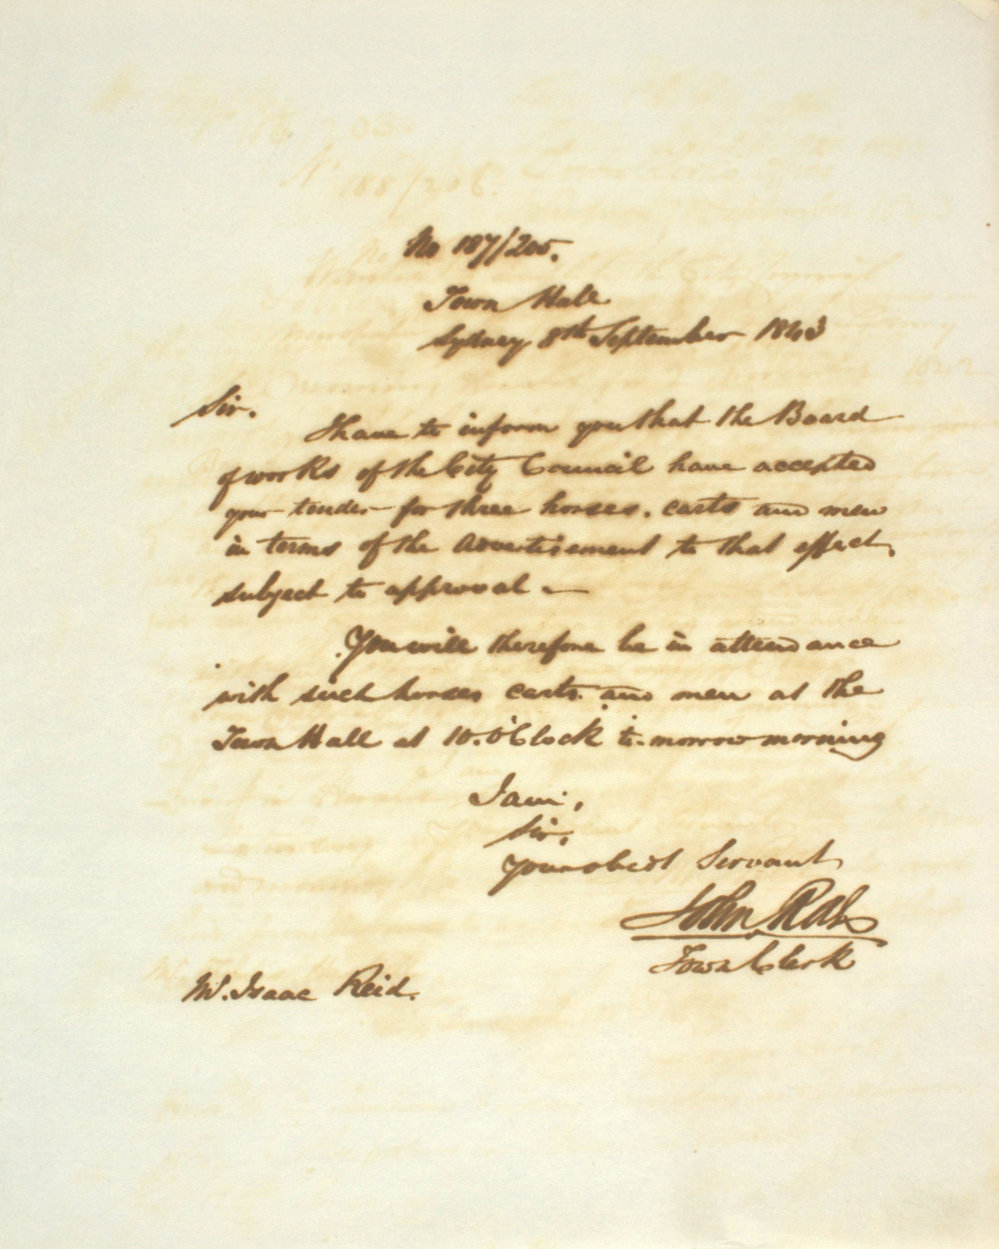 No 187/205.
Town Hall
Sydney 8th September 1843
Sir.
I have to inform you that the Board
of works of the City Council have accepted
your tender for three horses, carts and men
in terms of the Advertisement to that effect,
subject to approval —
You will therefore be in attendance
with such horses carts and men at the
Town Hall at 10.O'Clock to-morrow morning
I am,
Sir,
Your obedt Servant
John Rae
Town Clerk
Mr. Isaac Reid.